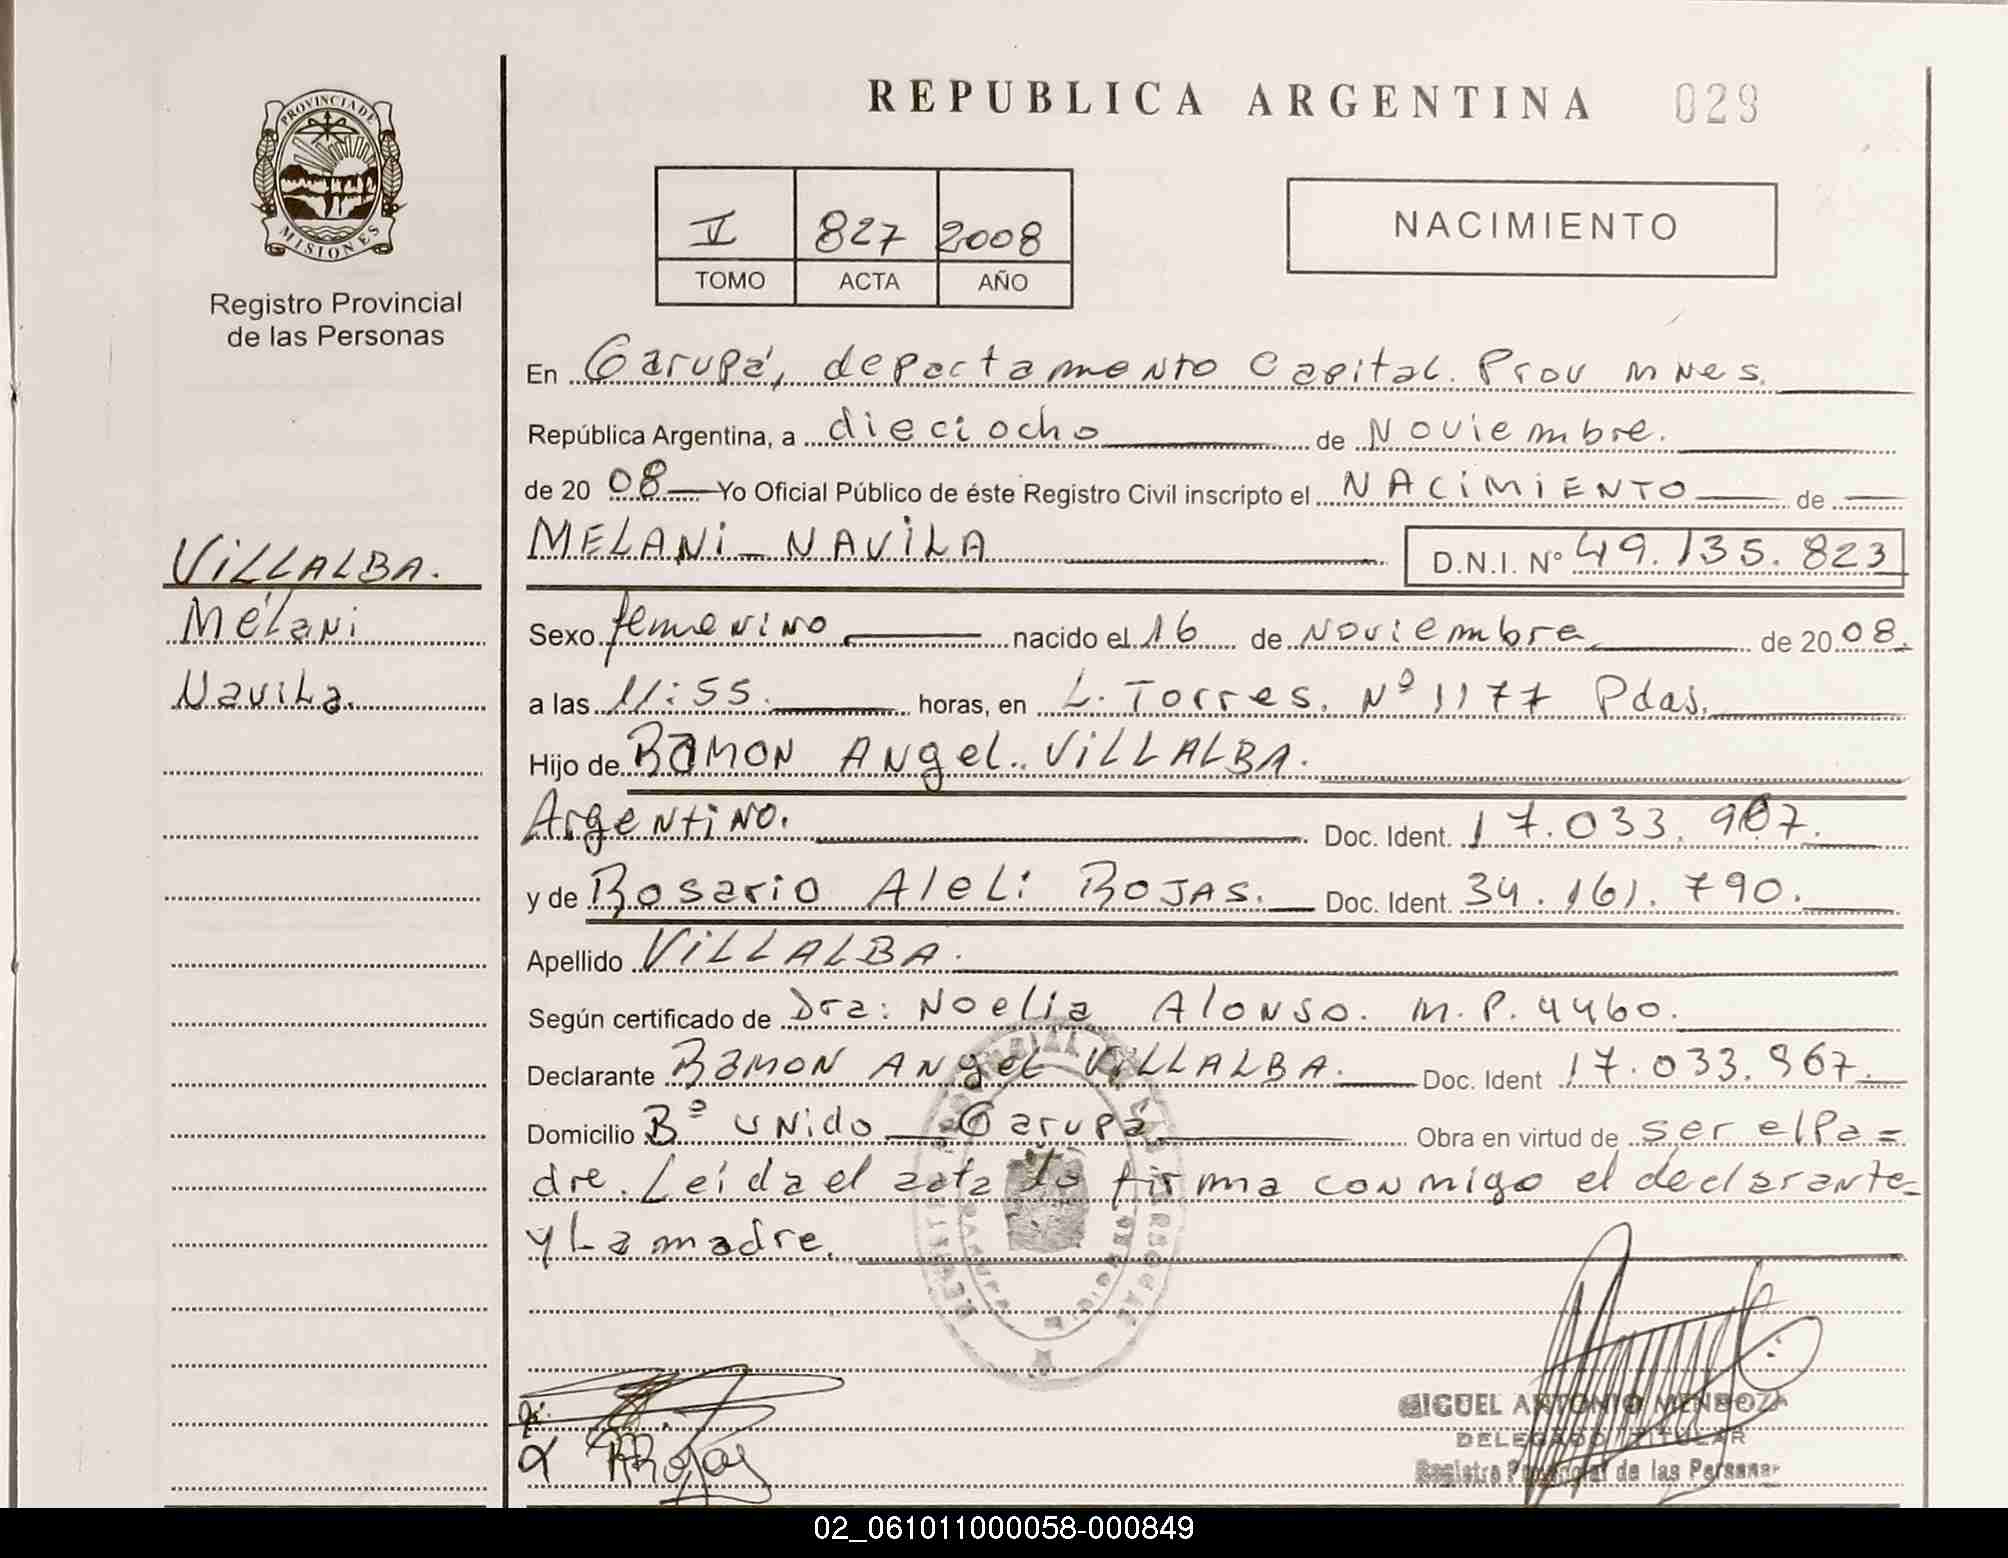 PROVINCIA DE
MISIONES
Registro Provincial
de las Personas
VILLALBA.
Melani
Navila.
REPUBLICA ARGENTINA 029
V 827 2008
TOMO ACTA AÑO
NACIMIENTO
En Garupá, departamento Capital. Prov mnes.
República Argentina, a dieciocho de Noviembre.
de 20 08 Yo Oficial Público de éste Registro Civil inscripto el NACIMIENTO de
MELANI NAVILA D.N.I. Nº 49.135.823
Sexo femenino nacido el 16 de Noviembre de 20 08.
a las 11:55. horas, en L. Torres. Nº 1177 Pdas.
Hijo de RAMON Angel VILLALBA.
Argentino. Doc. Ident. 17.033.967.
y de Rosario Aleli ROJAS. Doc. Ident. 34.161.790.
Apellido VILLALBA.
Según certificado de Dra: Noelia Alonso. M.P. 4460.
Declarante RAMON ANgel VILLALBA. Doc. Ident 17.033.967.
Domicilio Bº UNido Garupá Obra en virtud de ser el Pa=
dre. Leída el acta la firma conmigo el declarante
y La madre.
Rojas
MIGUEL ANTONIO MENDOZA
DELEGADO TITULAR
Registro Provincial de las Personas
02_061011000058-000849